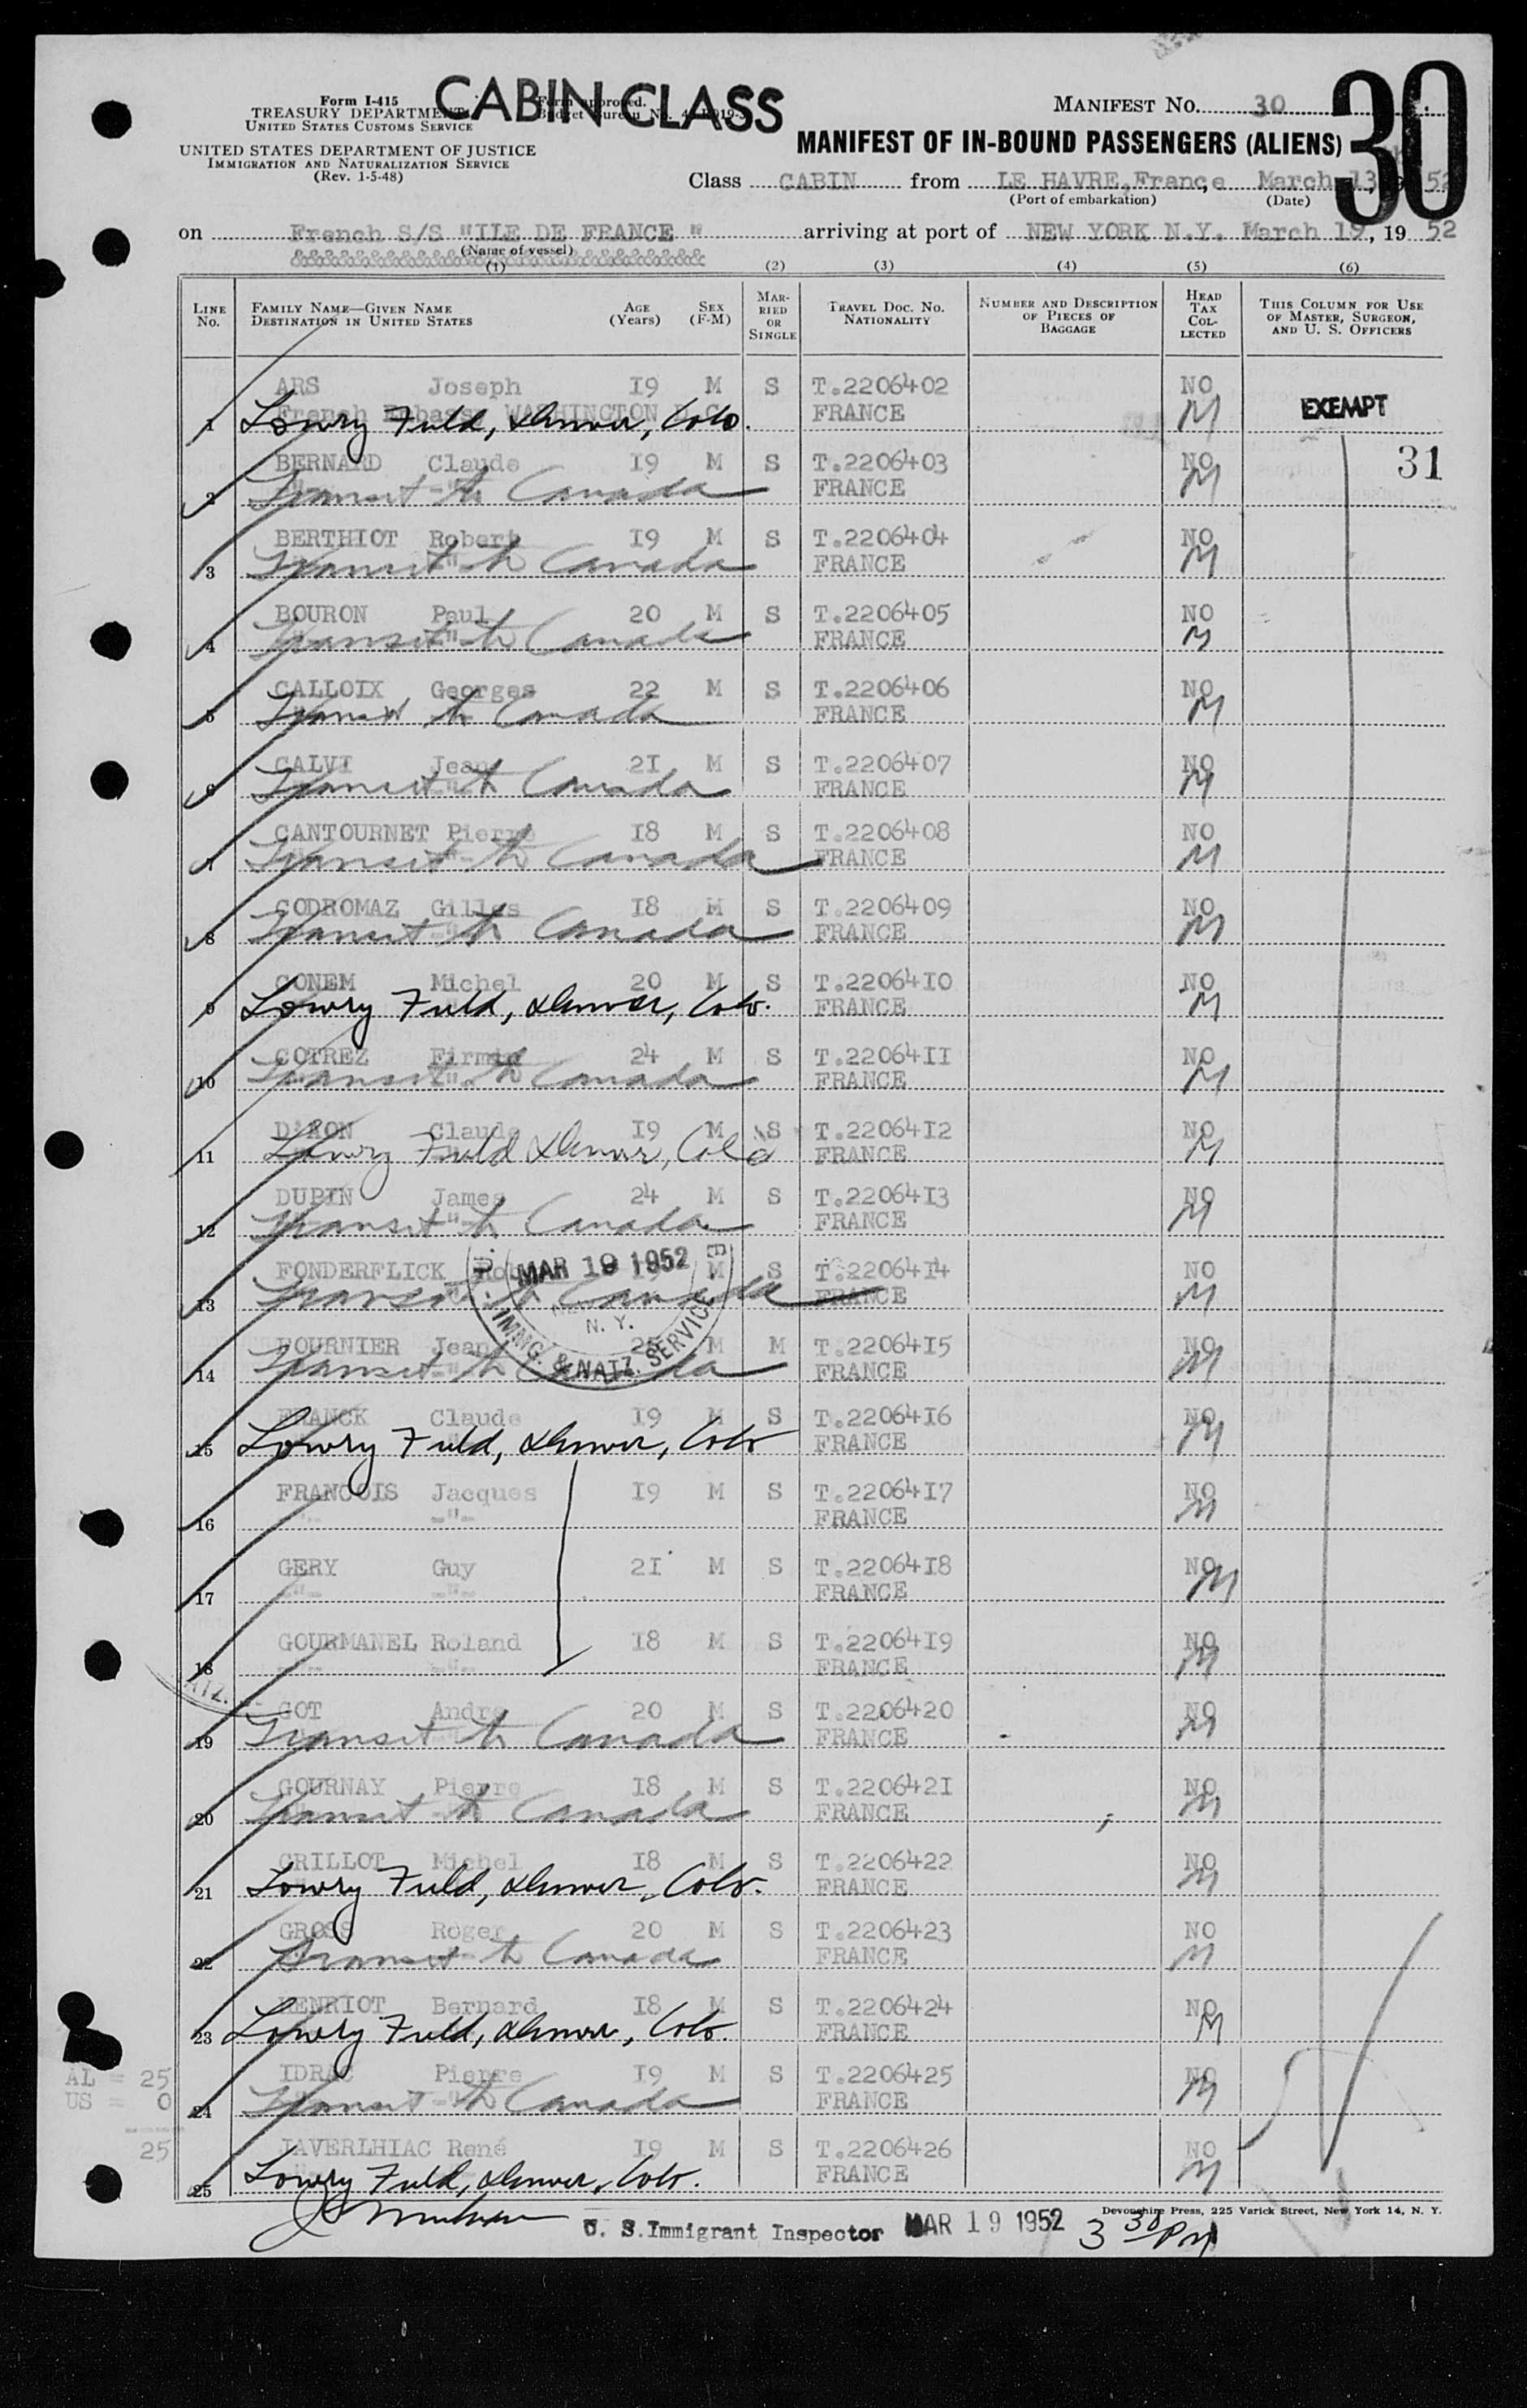 CABIN CLASS
30
Form I-415
TREASURY DEPARTMENT
UNITED STATES CUSTOMS SERVICE
UNITED STATES DEPARTMENT OF JUSTICE
IMMIGRATION AND NATURALIZATION SERVICE
(Rev. 1-5-48)
Form approved.
MANIFEST NO. 30
MANIFEST OF IN-BOUND PASSENGERS (ALIENS)
Class CABIN from LE HAVRE, France March 13, 52
(Port of embarkation) (Date)
on French S/S "ILE DE FRANCE " arriving at port of NEW YORK N.Y. March 19, 19 52
(Name of vessel)
(1) (2) (3) (4) (5) (6)
LINE No. FAMILY NAME—GIVEN NAME DESTINATION IN UNITED STATES AGE (Years) SEX (F-M) MARRIED OR SINGLE TRAVEL DOC. NO. NATIONALITY NUMBER AND DESCRIPTION OF PIECES OF BAGGAGE HEAD TAX COLLECTED THIS COLUMN FOR USE OF MASTER, SURGEON, AND U. S. OFFICERS
ARS Joseph 19 M S T.2206402 NO
French Embassy WASHINGTON D.C.
1 Lowry Field, Denver, Colo. FRANCE M EXEMPT
BERNARD Claude 19 M S T.2206403 NO 31
2 Transit to Canada FRANCE M
BERTHIOT Robert 19 M S T.2206404 NO
3 Transit to Canada FRANCE M
BOURON Paul 20 M S T.2206405 NO
4 Transit to Canada FRANCE M
CALLOIX Georges 22 M S T.2206406 NO
5 Transit to Canada FRANCE M
CALVI Jean 21 M S T.2206407 NO
6 Transit to Canada FRANCE M
CANTOURNET Pierre 18 M S T.2206408 NO
7 Transit to Canada FRANCE M
CODROMAZ Gilles 18 M S T.2206409 NO
8 Transit to Canada FRANCE M
CONEM Michel 20 M S T.2206410 NO
9 Lowry Field, Denver, Colo. FRANCE M
COTREZ Firmin 24 M S T.2206411 NO
10 Transit to Canada FRANCE M
Claude 19 M S T.2206412 NO
11 Lowry Field Denver, Colo FRANCE M
DUPIN James 24 M S T.2206413 NO
12 Transit to Canada FRANCE M
FONDERFLICK 19 M S T.2206414 NO
13 Transit to Canada FRANCE M
MAR 19 1952
N. Y.
IMMG. & NATZ. SERVICE
FOURNIER Jean 25 M M T.2206415 NO
14 Transit to Canada FRANCE M
FRANCK Claude 19 M S T.2206416 NO
15 Lowry Field, Denver, Colo FRANCE M
FRANCOIS Jacques 19 M S T.2206417 NO
16 -"- -"- FRANCE M
GERY Guy 21 M S T.2206418 NO
17 -"- -"- FRANCE M
GOURMANEL Roland 18 M S T.2206419 NO
18 -"- -"- FRANCE M
GOT Andre 20 M S T.2206420 NO
19 Transit to Canada FRANCE M
GOURNAY Pierre 18 M S T.2206421 NO
20 Transit to Canada FRANCE M
GRILLOT Michel 18 M S T.2206422 NO
21 Lowry Field, Denver, Colo. FRANCE M
GROSS Roger 20 M S T.2206423 NO
22 Transit to Canada FRANCE M
HENRIOT Bernard 18 M S T.2206424 NO
23 Lowry Field, Denver, Colo. FRANCE M
AL = 25 IDRAC Pierre 19 M S T.2206425 NO
US = 0 24 Transit to Canada FRANCE M
25 JAVERLHIAC René 19 M S T.2206426 NO
25 Lowry Field, Denver, Colo. FRANCE M
Devonshire Press, 225 Varick Street, New York 14, N. Y.
U. S. Immigrant Inspector MAR 19 1952 3 30 PM